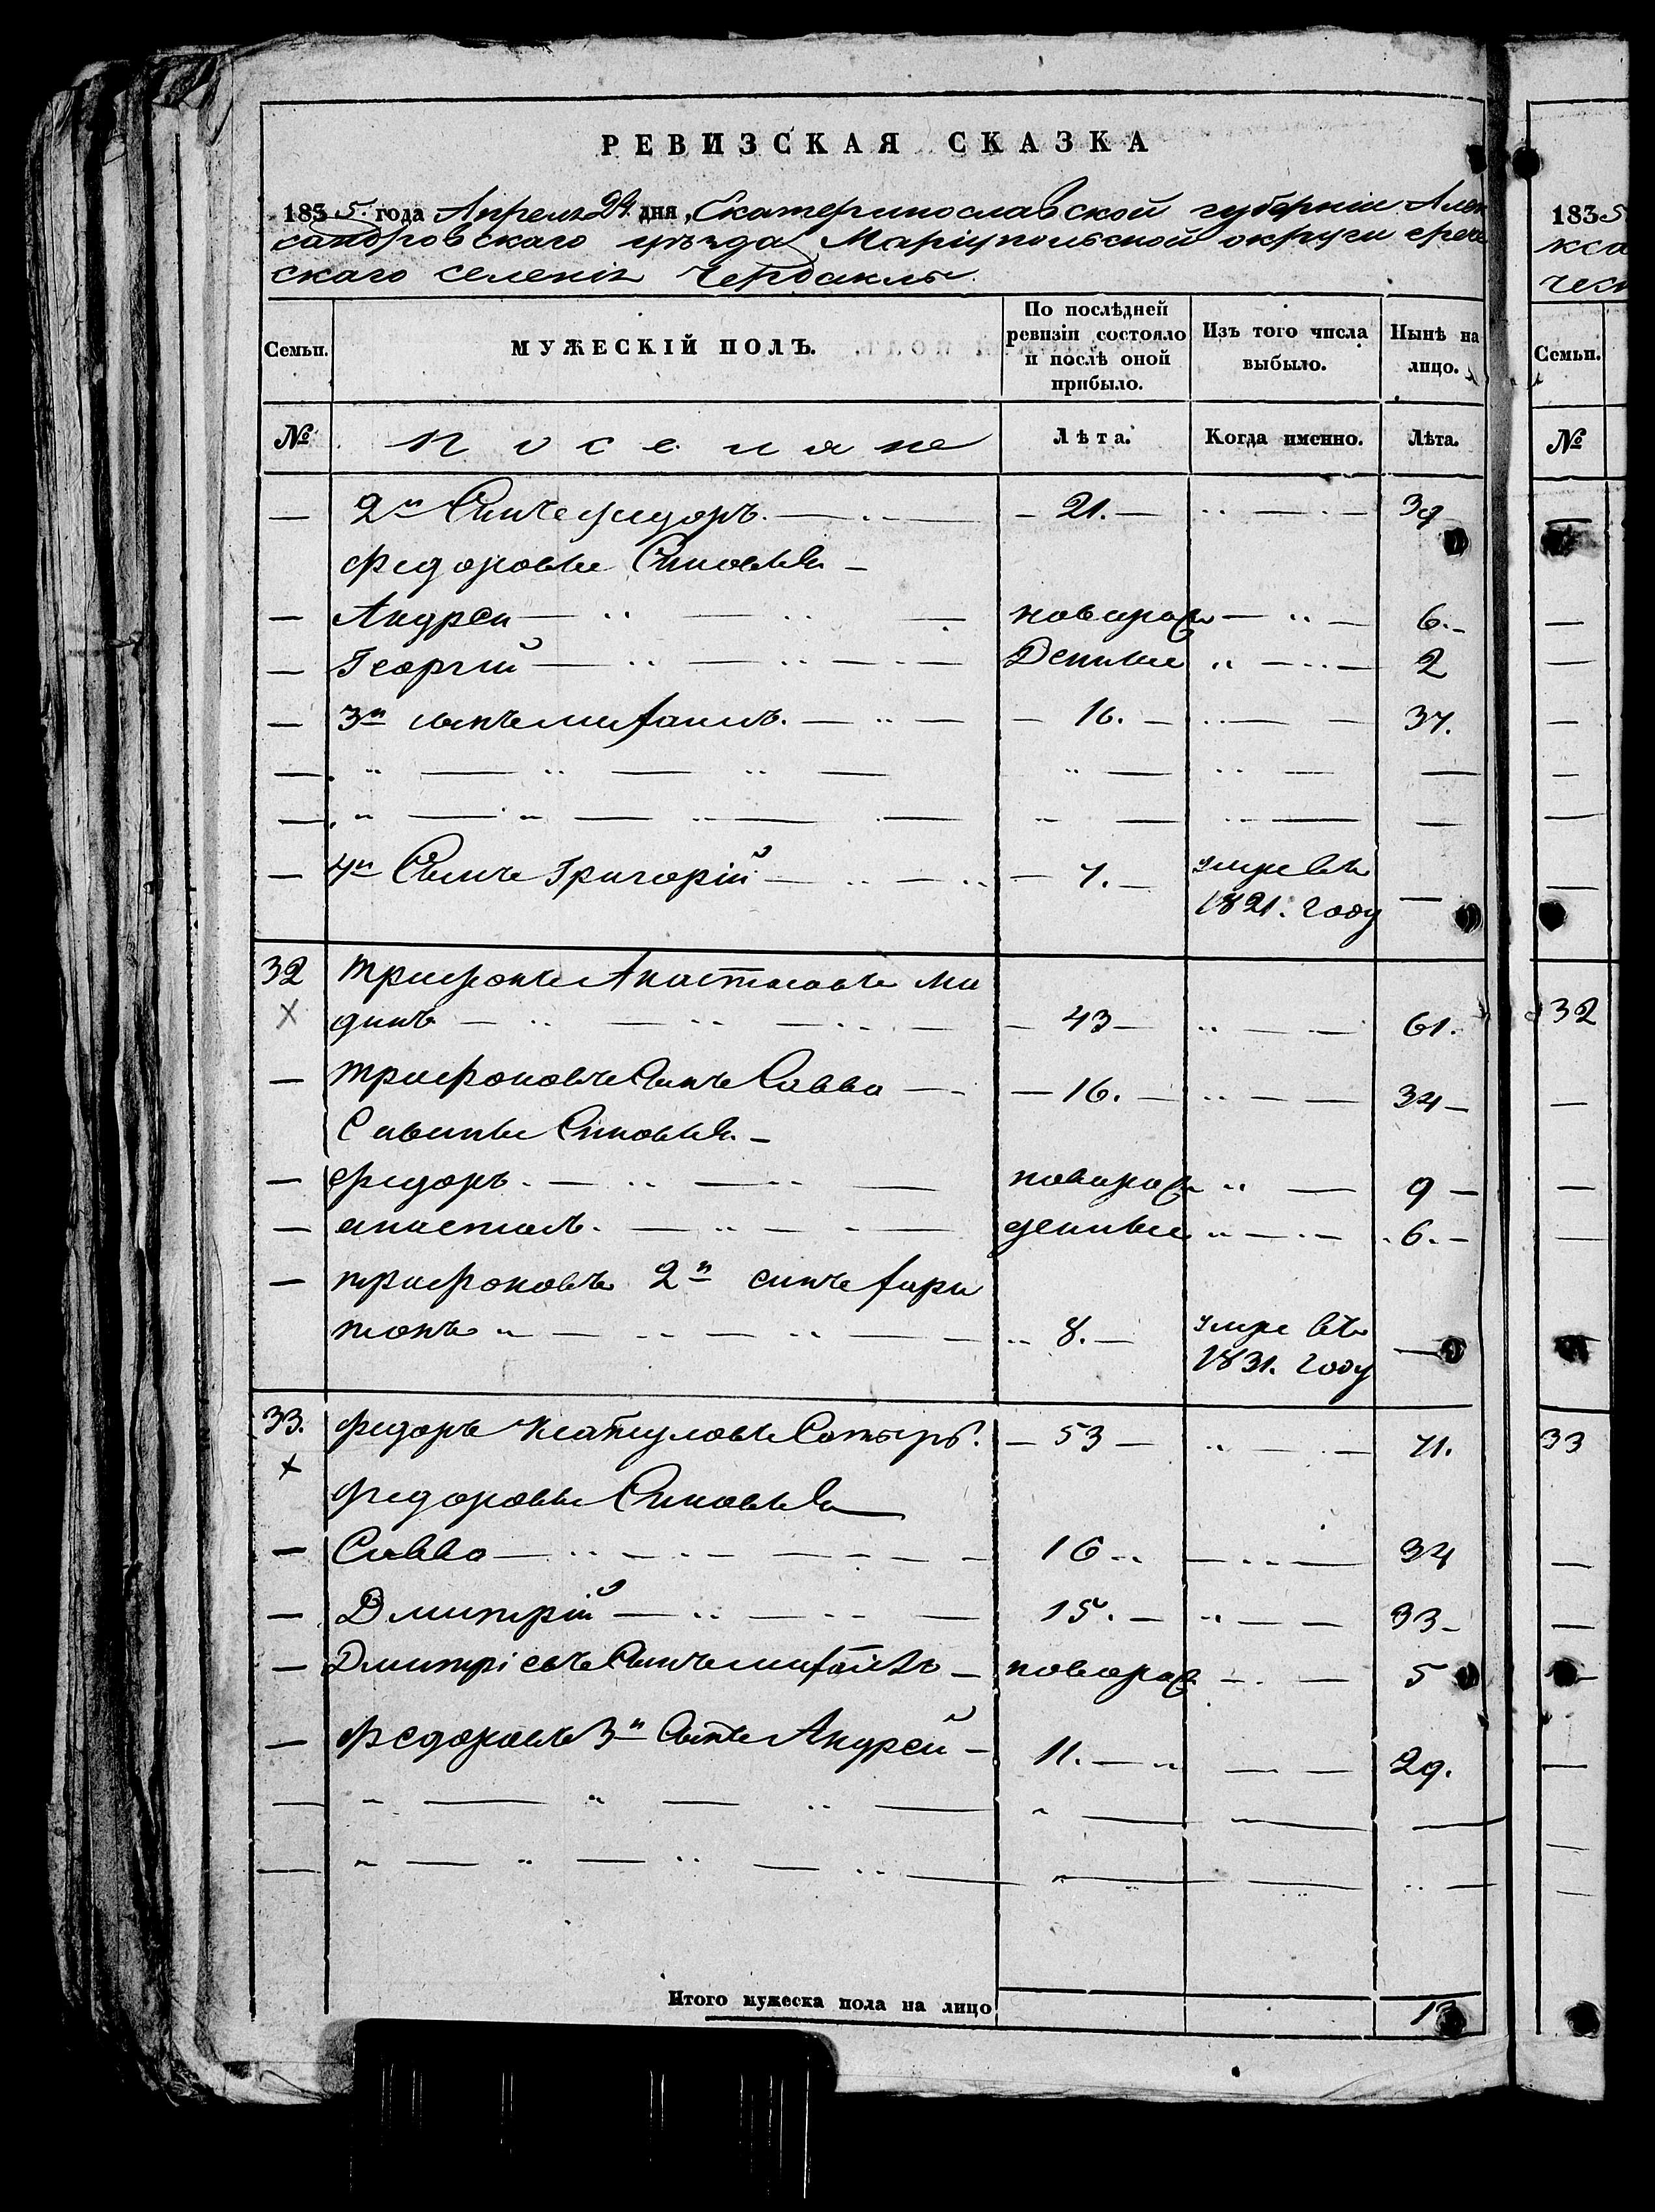 РЕВИЗСКАЯ СКАЗКА
1835. года Апреля 24. дня, Екатеринославской губерніи Алек
сандровскаго уѣзда Маріупольской округи грече
скаго селенія Чердакли
Семьи.
МУЖЕСКІЙ ПОЛЪ.
По послѣдней ревизіи состояло и послѣ оной прибыло.
Изъ того числа выбыло.
Нынѣ на лицо.
№
поселяне
Лѣта.
Когда именно.
Лѣта.
— 2й Сынъ федоръ. — 21. — 39
федоровы Сыновья —
— Андрей — новорож — 6. —
— Георгій —Денные — 2
— 3й сынъ михаилъ. — 16. — 34.
— 4й Сынъ Григорій — 7. — умре въ
1821. году —
32 трифонъ Анастасовъ
— 43 — 61.
— трифоновъ Сынъ Савва — 16. — 34 —
Савины Сыновья. —
— федоръ. — новорож — 9 —
— анастасъ. — денные — 6. —
— трифоновъ 2й сынъ хари
тонъ — 8. — умре въ
1831. году —
33. федоръ — 53 — 71.
федоровы Сыновья
— Савва — 16 — 34
— Дмитрій — 15. — 33 —
— Дмитріевъ Сынъ михайло — новорож — 5
— Федоровъ 3й Сынъ Андрей — 11. — 29.
Итого мужеска пола на лицо 13
1835
№
Семьи.
32
33